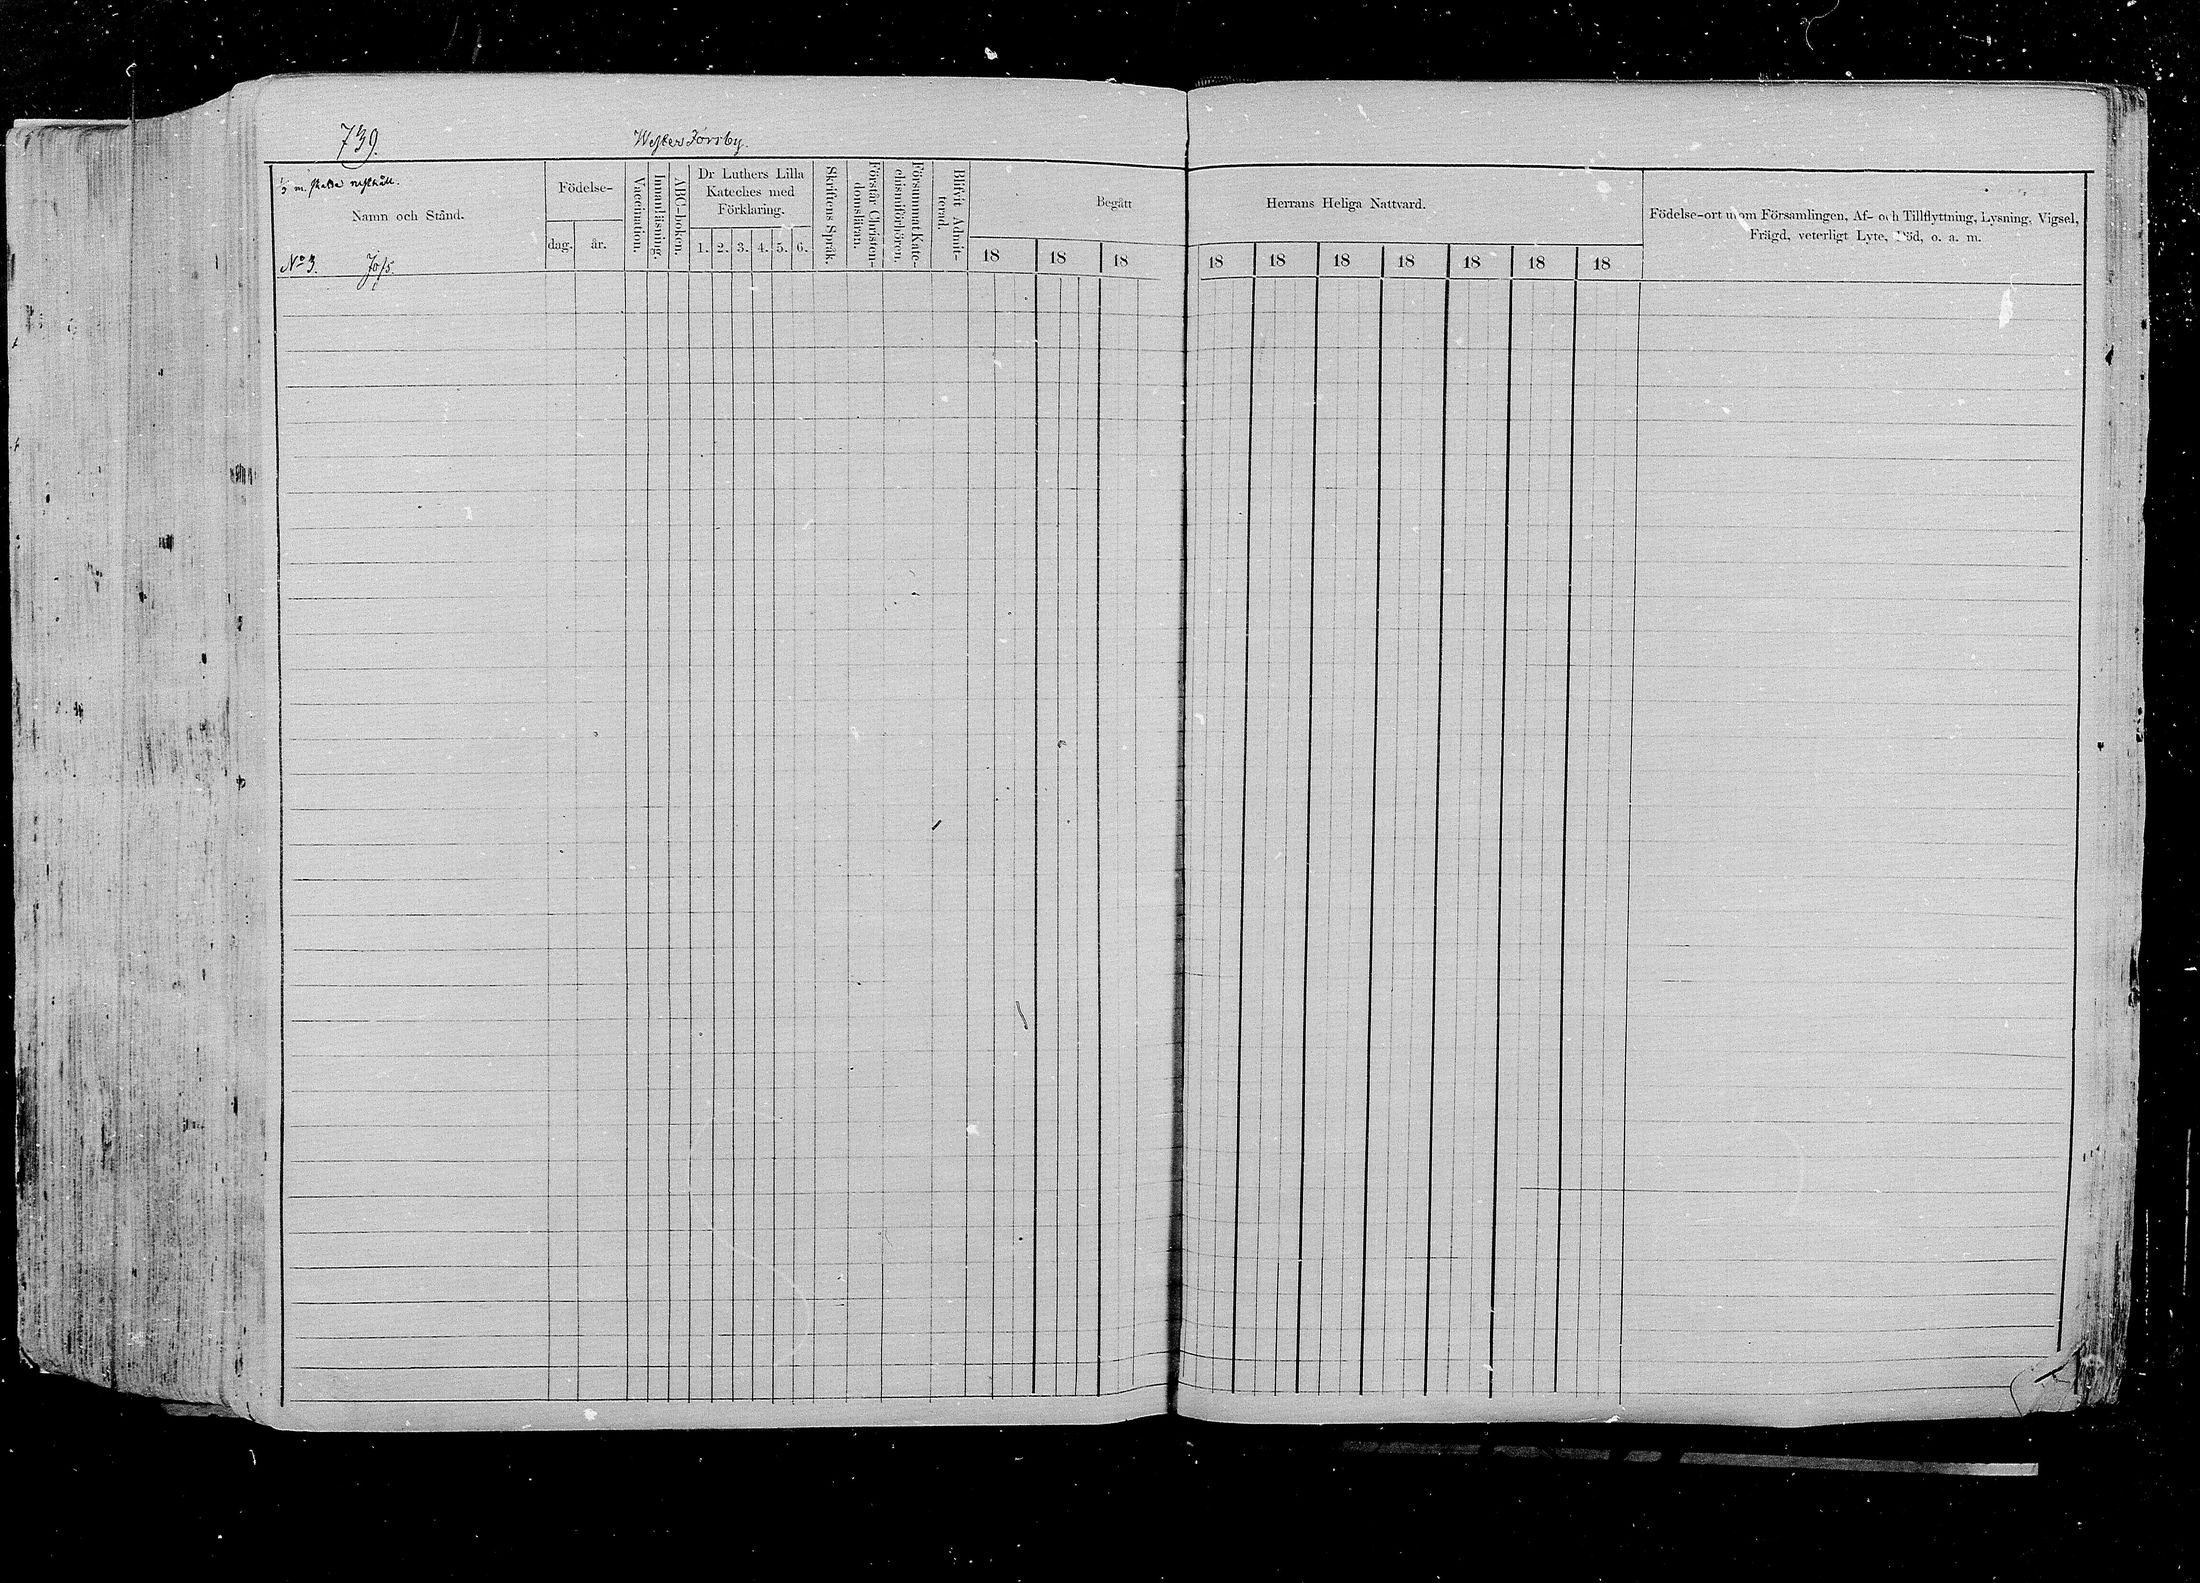 739.
Westersörsby.
1/3 m. skatte
Namn och Stånd.
No 3.
Födelse-
dag.
år.
Vaccination.
Innanläsning.
ABC-boken.
Dr Luthers Lilla
Kateches med
Förklaring.
1. 2. 3. 4. 5. 6.
Skriftens Språk.
Förstår Christen-
domsläran.
Försummat Kate-
chismiförhören.
Blifvit Admit-
terad.
Begått Herrans Heliga Nattvard.
18 18 18 18 18 18 18 18 18 18
Födelse-ort utom Församlingen, Af- och Tillflyttning, Lysning, Vigsel,
Frägd, veterligt Lyte, Död, o. a. m.